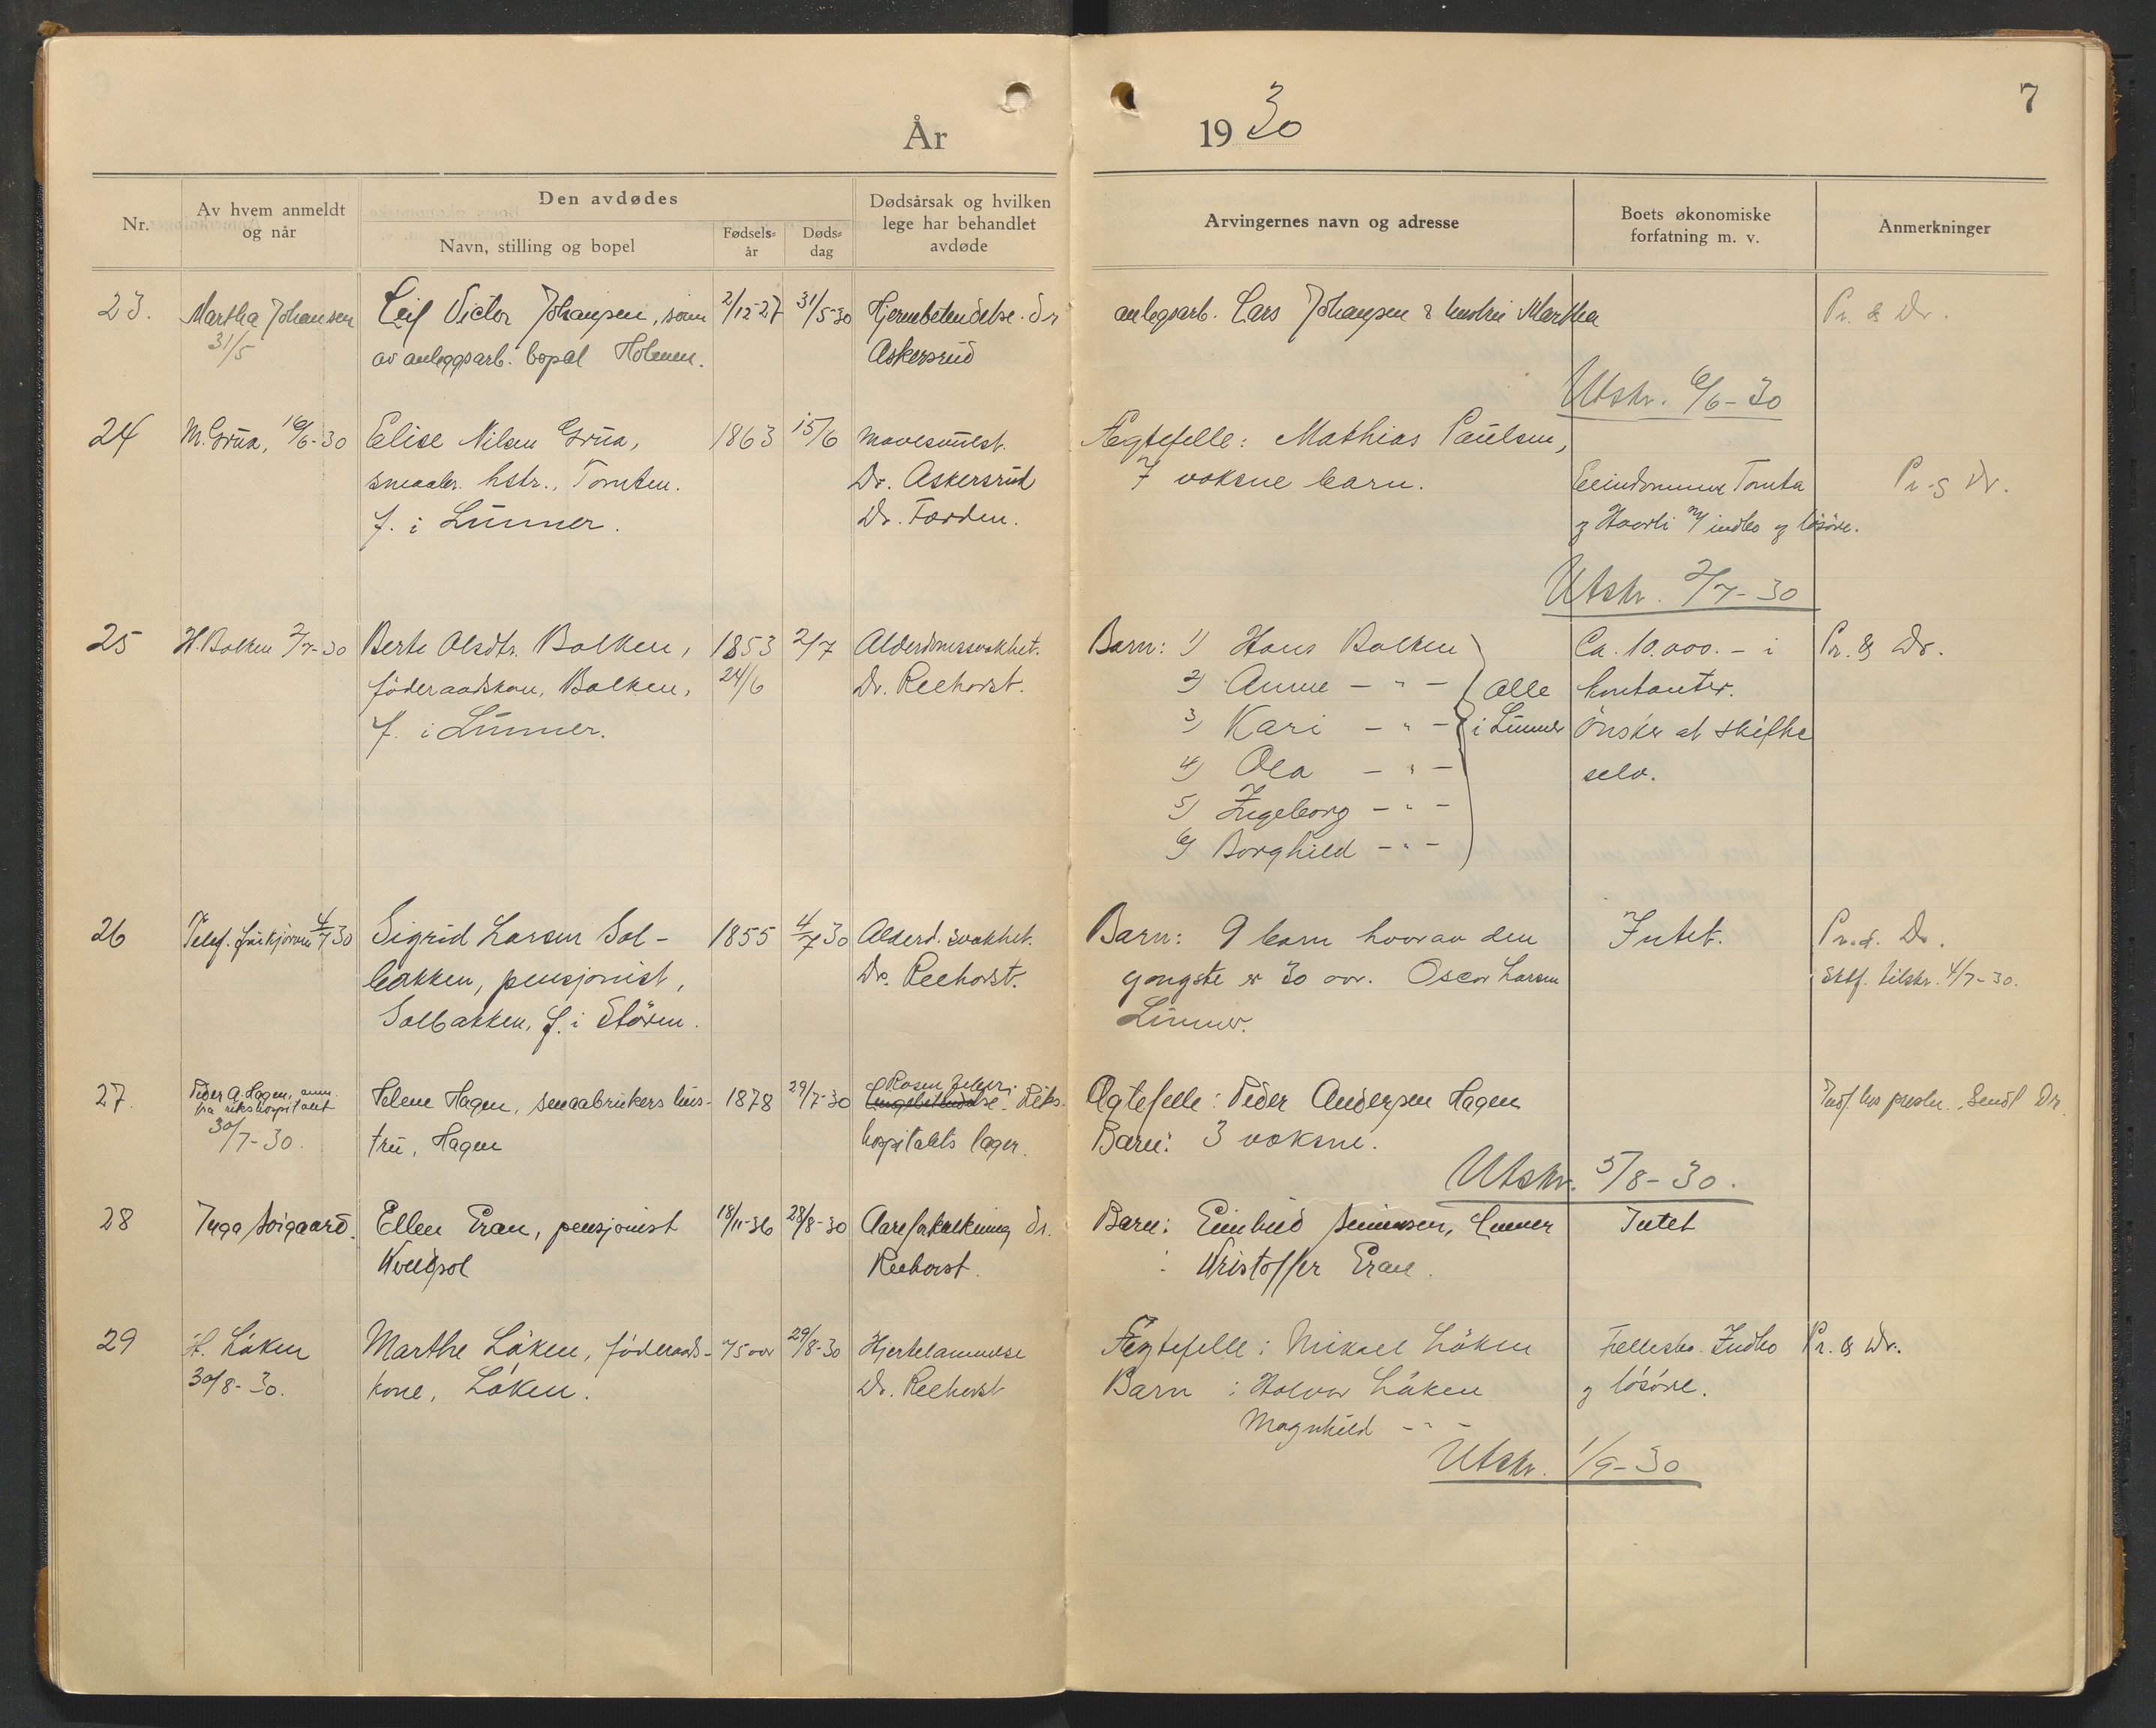 År 1930
7
Nr.
Av hvem anmeldt
og når
Den avdødes
Navn, stilling og bopel
Fødsels=
år
Døds=
dag
Dødsårsak og hvilken
lege har behandlet
avdøde
Arvingernes navn og adresse
Boets økonomiske
forfatning m. v.
Anmerkninger
23.
Martha Johansen
31/5
Leif Victor Johansen, sønn
av anleggsarb. bopæl Holmen.
2/12-27
31/5-30
Hjernebetendelse. Dr
Askersrud
anlegsarb. Lars Johansen & hustru Martha
Pr. & Dr.
Utskr. 6/6-30
24
M. Grua, 16/6-30
Elise Nilsen Grua,
smaabr. hstr., Tomten.
f. i Lunner.
1863
15/6
Dr. Askersrud
Dr. Førden.
Ægtefelle: Mathias Paulsen,
7 voksne barn.
Eeindommene Tomta
og Haarli m/ indbo og løsøre.
Pr. & Dr.
Utskr. 2/7-30
25
H. Balken 2/7-30
Berte Olsdtr. Balken,
föderaadskone, Balken,
f. i Lunner.
1853
24/6
2/7
Alderdomssvakhet.
Dr. Reehorst.
Barn: 1) Hans Balken
2) Anne – " –
3) Kari – " –
4) Ola – " –
5) Ingeborg – " –
6) Borghild – " –
alle
i Lunner
Ca. 10.000.– i
kontanter.
Önsker at skifte
selv.
Pr. & Dr.
26
Telef. 4/7 30
Sigrid Larsen Sol-
bakken, pensjonist,
Solbakken, f. i Stören.
1855
4/7 30
Alderd. svakhet.
Dr. Reehorst.
Barn: 9 barn hvorav den
yngste er 30 aar. Oscar Larsen
Lunner.
Intet.
Pr. & Dr.
Skf. tilskr. 4/7-30.
27.
Peder A. Hagen, anm.
fra rikshospitalet
30/7-30.
Helene Hagen, smaabrukers hus-
tru, Hagen
1878
29/7-30
Rosen
Riks-
hospitalets læger.
Ægtefelle: Peder Andersen Hagen
Barn: 3 voksne.
Indf. hos presten. Sendt Dr.
Utskr. 5/8-30.
28
Inga Svigaard.
Ellen Gran, pensjonist
Kveldsol
18/11-36
28/8-30
Aareforkalkning Dr.
Reehorst.
Barn: Simensen, Lunner
: Kristoffer Gran.
Intet
29
H. Löken
30/8-30.
Marthe Löken, föderaads-
kone, Löken.
75 aar
29/8-30
Hjertelammelse
Dr. Reehorst
Ægtefelle: Mikael Löken
Barn : Halvor Löken
Magnhild – " –
Fellesbo. Indbo
og lösöre.
Pr. & Dr.
Utskr. 1/9-30